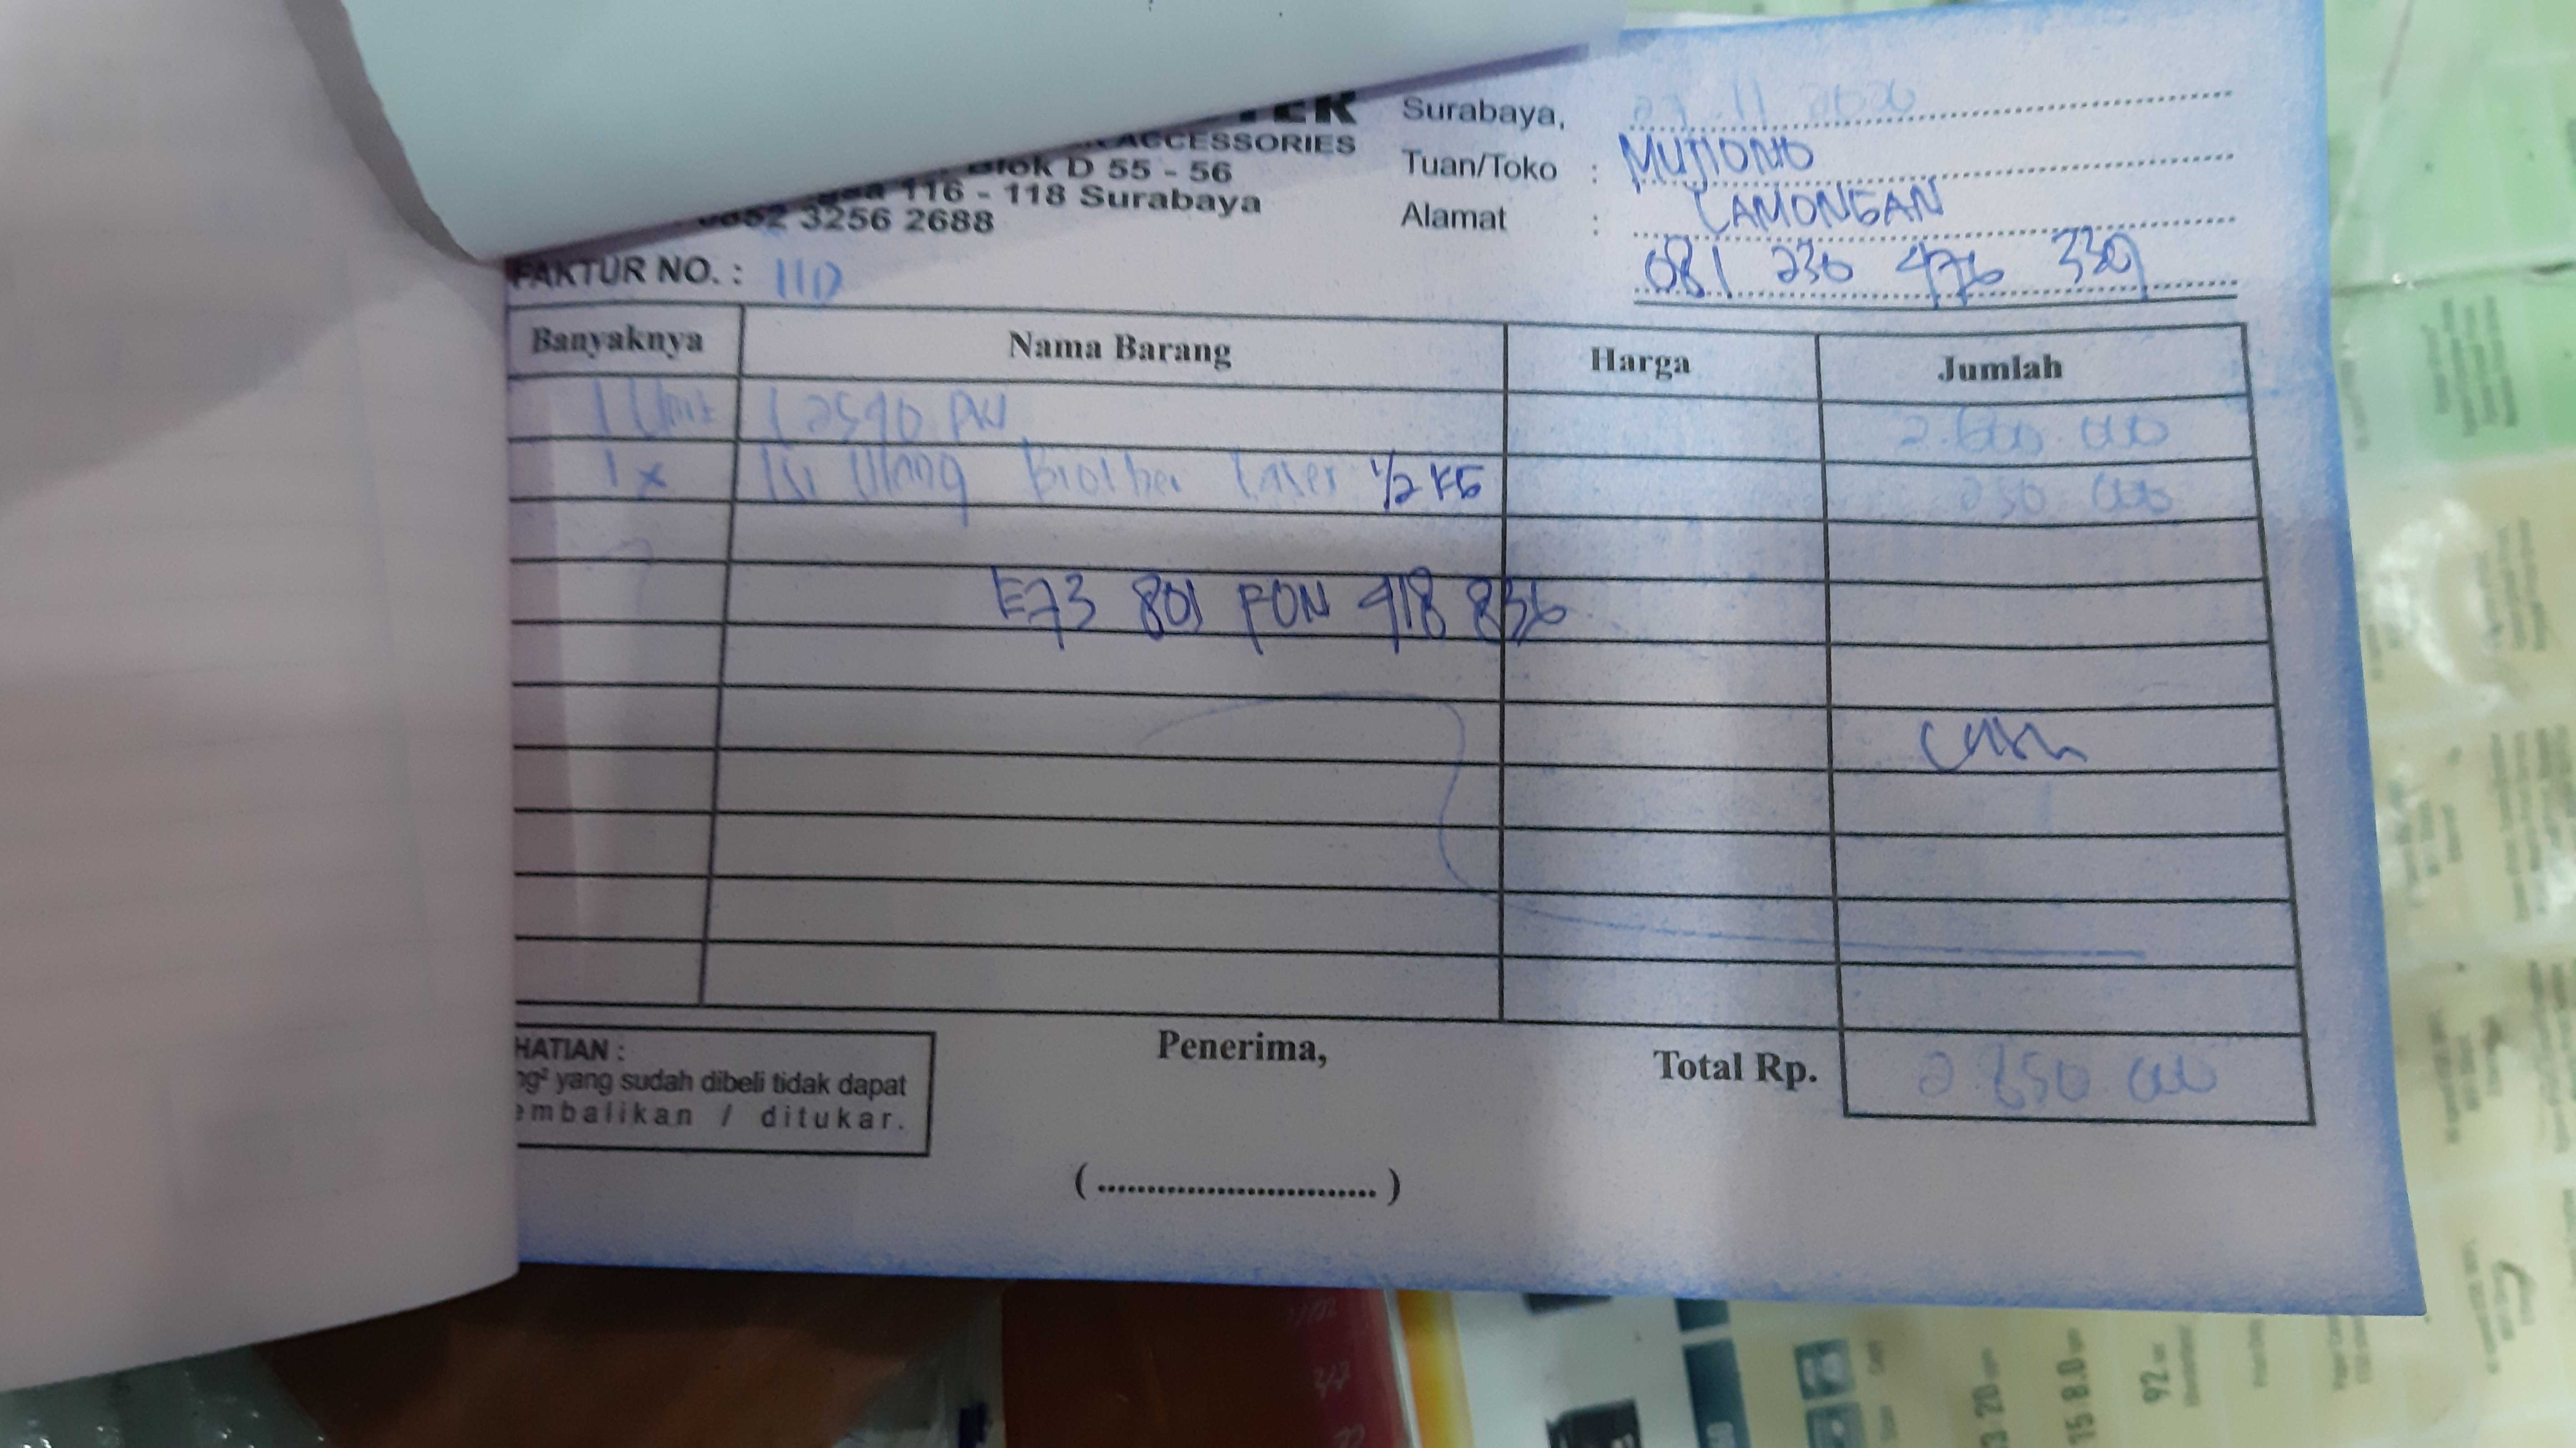 TEK
ACCESSORIES
Blok D 55 - 56
116 - 118 Surabaya
3256 2688
Surabaya,
Tuan/Toko : MUJIONO
Alamat : LAMONGAN
081 236 476 339
FAKTUR NO. : 110
Banyaknya Nama Barang Harga Jumlah
1 Unit 2.600.000
1 x Isi Ulang Brother Laser 1/2 KG 250 000
E73 801 FON 418 836
Cash
HATIAN :
ng² yang sudah dibeli tidak dapat
embalikan / ditukar.
Penerima,
Total Rp. 2 850 000
(..............................)